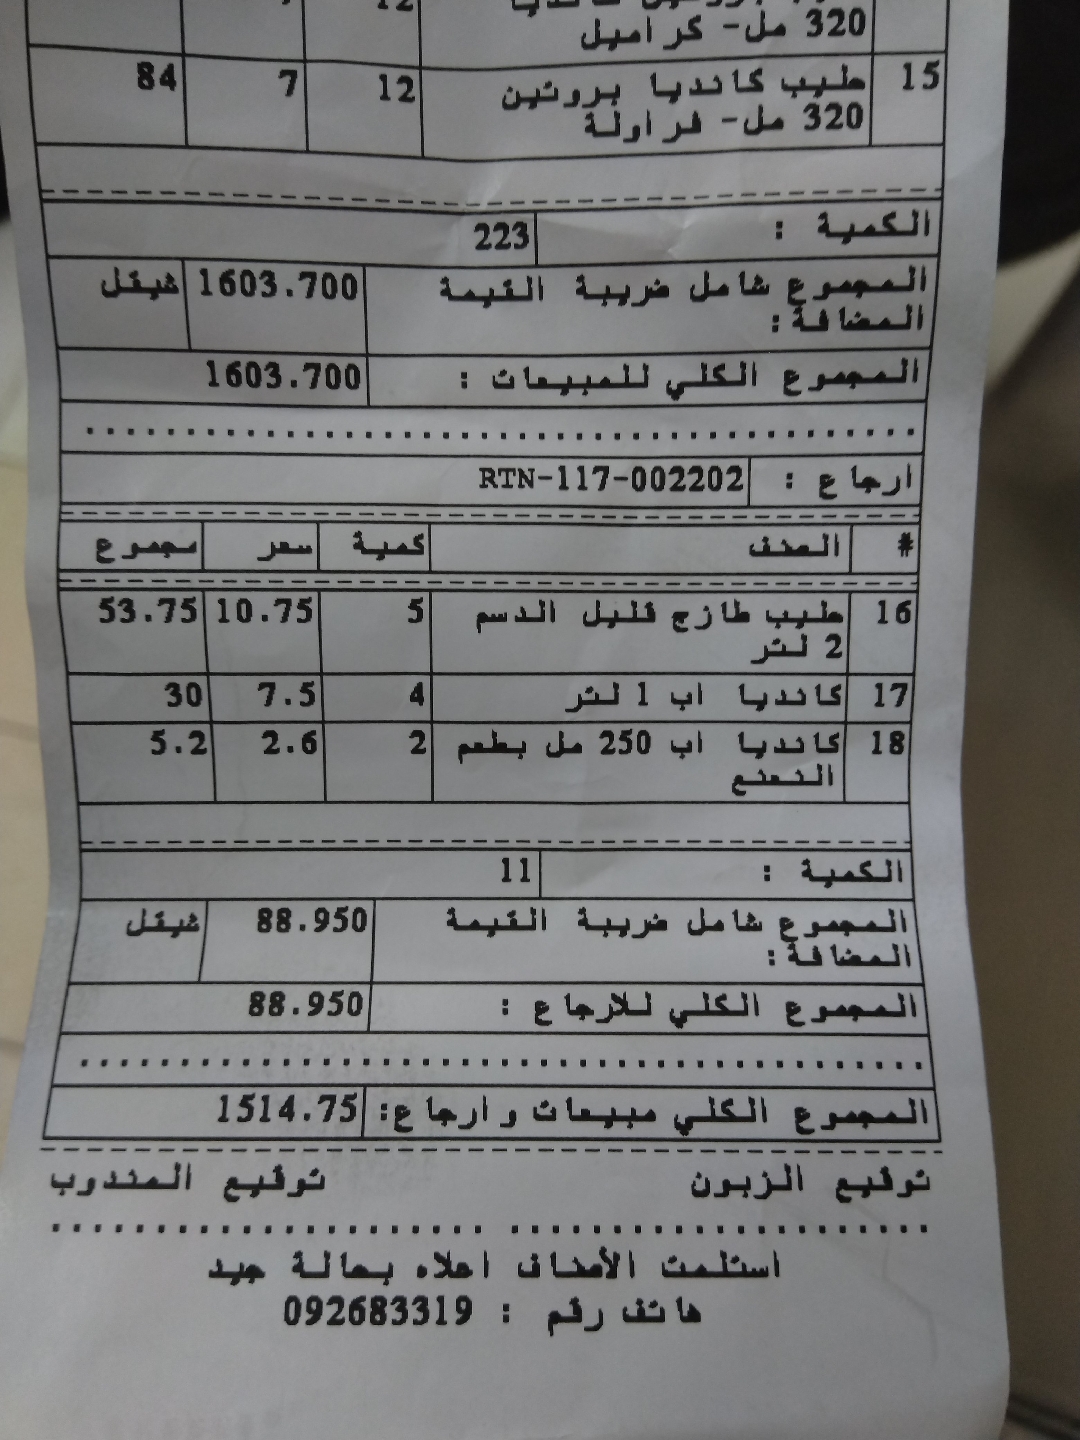 12
320 مل- كراميل
15 حليب كانديا بروتين 12 7 84
320 مل- فراولة
الكمية : 223
المجموع شامل ضريبة القيمة 1603.700 شيقل
المضافة:
المجموع الكلي للمبيعات : 1603.700
ارجاع : RTN-117-002202
# الصنف كمية سعر مجموع
16 حليب طازج قليل الدسم 5 10.75 53.75
2 لتر
17 كانديا اب 1 لتر 4 7.5 30
18 كانديا اب 250 مل بطعم 2 2.6 5.2
النعنع
الكمية : 11
المجموع شامل ضريبة القيمة 88.950 شيقل
المضافة:
المجموع الكلي للارجاع : 88.950
المجموع الكلي مبيعات وارجاع: 1514.75
توقيع الزبون توقيع المندوب
استلمت الأصناف اعلاه بحالة جيد
هاتف رقم : 092683319